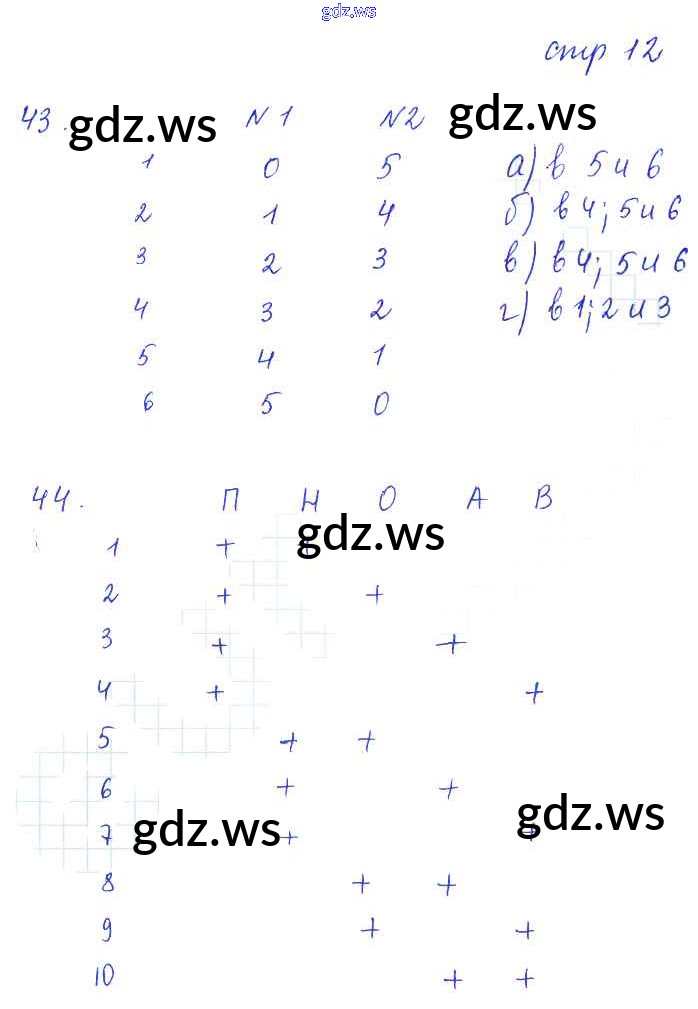 gdz.ws
стр 12
43. gdz.ws N1 N2 gdz.ws
1 0 5 а) в 5 и 6
2 1 4 б) в 4; 5 и 6
3 2 3 в) в 4; 5 и 6
4 3 2 г) в 1; 2 и 3
5 4 1
6 5 0
44. П Н О А В
1 + + gdz.ws
2 + +
3 + +
4 + +
5 + +
6 + +
7 + + gdz.ws gdz.ws
8 + +
9 + +
10 + +